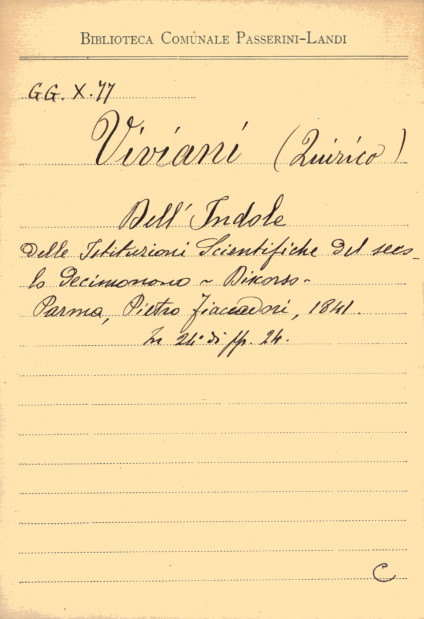 BIBLIOTECA COMUNALE PASSERINI-LANDI
GG. X. 77
Viviani (Quirico)
Dell' Indole
delle Istituzioni Scientifiche del seco-
lo decimonono - Discorso -
Parma, Pietro Fiaccadori, 1841.
In 24° di pp. 24.
C